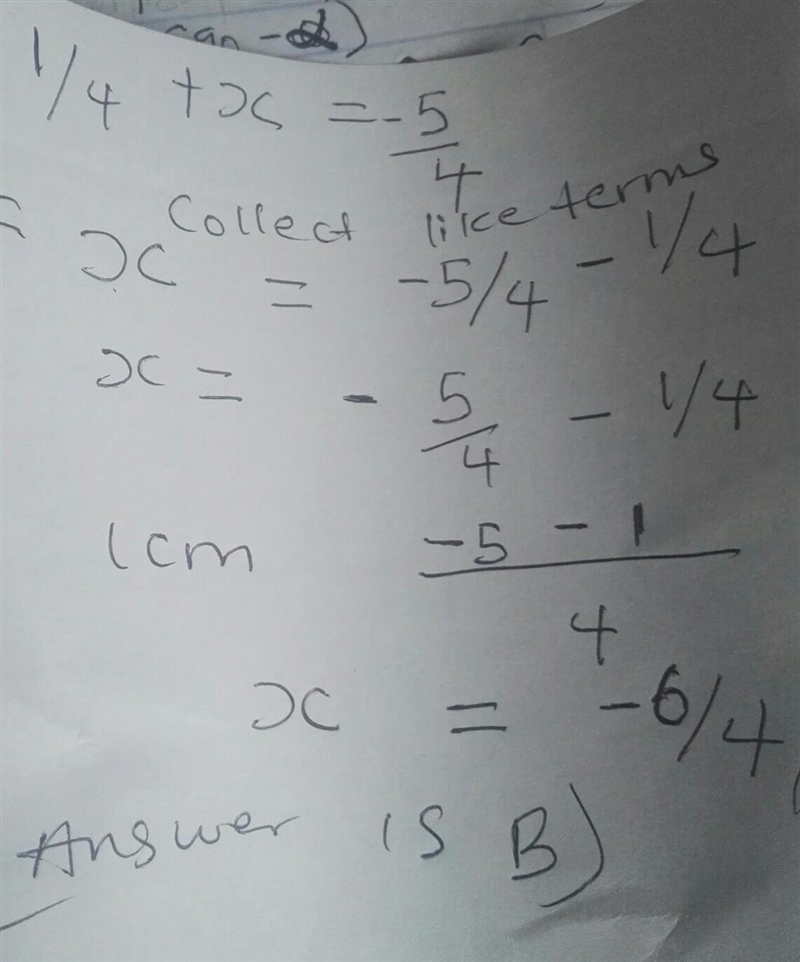 1/4 + x = -5/4
Collect like terms
x = -5/4 - 1/4
x = - 5/4 - 1/4
lcm -5 - 1 / 4
x = -6/4
Answer is B)